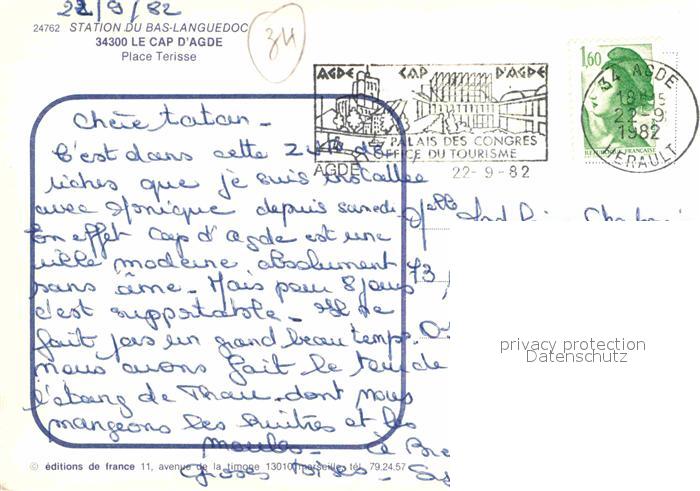 22/9/82
24762 STATION DU BAS-LANGUEDOC
34300 LE CAP D'AGDE
Place Terisse
34
AGDE CAP D'AGDE
PALAIS DES CONGRES
OFFICE DU TOURISME
AGDE
22-9-82
1,60
REPUBLIQUE FRANÇAISE
34 AGDE
18H
22-9
1982
HERAULT
Chère tatan -
C'est dans cette de
riches que je suis installee
avec Monique depuis samedi
En effet Cap d'agde est une
ville moderne absolument
sans âme - Mais pour 8 jours
c'est supportable - Il ne
fait pas un grand beau temps.
nous avons fait le tour de
l'étang de Thau - dont nous
mangeons les huitres et les
moules -
Grosses bises -
Melle
73
privacy protection
Datenschutz
© éditions de france 11, avenue de la timone 13010 marseille tél. 79.24.57